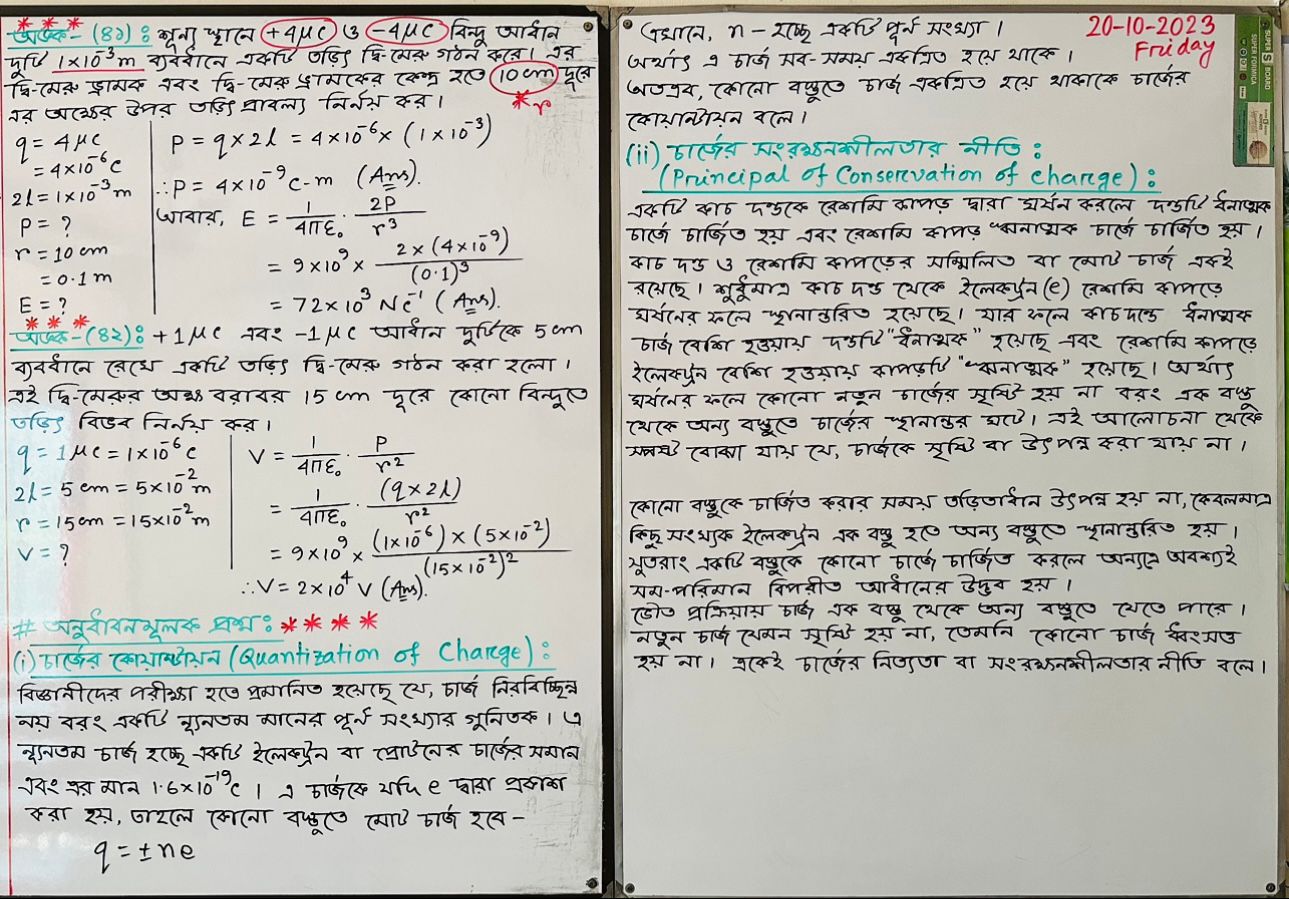 * * *
অংক-(৪১): শূন্য স্থানে +4μc ও -4μc বিন্দু আধান
দুটি 1×10⁻³m ব্যবধানে একটি তড়িৎ দ্বি-মেরু গঠন করে। এর
দ্বি-মেরু ভ্রামক এবং দ্বি-মেরু ভ্রামকের কেন্দ্র হতে 10cm দূরে
এর অক্ষের উপর তড়িৎ প্রাবল্য নির্ণয় কর।
* r
q = 4μc
= 4×10⁻⁶c
2l = 1×10⁻³m
P = ?
r = 10 cm
= 0.1 m
E = ?
P = q×2l = 4×10⁻⁶× (1×10⁻³)
∴P = 4×10⁻⁹c-m (Ans).
আবার, E = 1/4πε₀ · 2P/r³
= 9×10⁹× 2×(4×10⁻⁹)/(0.1)³
= 72×10³ Nc⁻¹ (Ans).
* * *
অংক-(৪২): +1μc এবং -1μc আধান দুটিকে 5cm
ব্যবধানে রেখে একটি তড়িৎ দ্বি-মেরু গঠন করা হলো।
এই দ্বি-মেরুর অক্ষ বরাবর 15 cm দূরে কোনো বিন্দুতে
তড়িৎ বিভব নির্নয় কর।
q = 1μc = 1×10⁻⁶c
2l = 5cm = 5×10⁻²m
r = 15cm = 15×10⁻²m
V = ?
V = 1/4πε₀ · P/r²
= 1/4πε₀ · (q×2l)/r²
= 9×10⁹× (1×10⁻⁶)×(5×10⁻²)/(15×10⁻²)²
∴V = 2×10⁴ V (Ans).
# অনুধাবনমূলক প্রশ্ন: * * * *
(i) চার্জের কোয়ান্টায়ন (Quantization of Charge):
বিজ্ঞানীদের পরীক্ষা হতে প্রমানিত হয়েছে যে, চার্জ নিরবিচ্ছিন্ন
নয় বরং একটি ন্যূনতম মানের পূর্ন সংখ্যার গুনিতক। এ
ন্যূনতম চার্জ হচ্ছে একটি ইলেকট্রন বা প্রোটনের চার্জের সমান
এবং এর মান 1.6×10⁻¹⁹c। এ চার্জকে যদি e দ্বারা প্রকাশ
করা হয়, তাহলে কোনো বস্তুতে মোট চার্জ হবে-
q = ±ne
20-10-2023
Friday
এখানে, n - হচ্ছে একটি পূর্ন সংখ্যা।
অর্থাৎ এ চার্জ সব-সময় একত্রিত হয়ে থাকে।
অতএব, কোনো বস্তুতে চার্জ একত্রিত হয়ে থাকাকে চার্জের
কোয়ান্টায়ন বলে।
(ii) চার্জের সংরক্ষনশীলতার নীতি:
(Principal of Conservation of charge):
একটি কাচ দন্ডকে রেশমি কাপড় দ্বারা ঘর্ষন করলে দন্ডটি ধনাত্মক
চার্জে চার্জিত হয় এবং রেশমি কাপড় ঋনাত্মক চার্জে চার্জিত হয়।
কাচ দন্ড ও রেশমি কাপড়ের সম্মিলিত বা মোট চার্জ একই
রয়েছে। শুধুমাত্র কাচ দন্ড থেকে ইলেকট্রন(e) রেশমি কাপড়ে
ঘর্ষনের ফলে স্থানান্তরিত হয়েছে। যার ফলে কাচদন্ডে ধনাত্মক
চার্জ বেশি হওয়ায় দন্ডটি "ধনাত্মক" হয়েছে এবং রেশমি কাপড়ে
ইলেকট্রন বেশি হওয়ায় কাপড়টি "ঋনাত্মক" হয়েছে। অর্থাৎ
ঘর্ষনের ফলে কোনো নতুন চার্জের সৃষ্টি হয় না বরং এক বস্তু
থেকে অন্য বস্তুতে চার্জের স্থানান্তর ঘটে। এই আলোচনা থেকে
স্পষ্ট বোঝা যায় যে, চার্জকে সৃষ্টি বা উৎপন্ন করা যায় না।
কোনো বস্তুকে চার্জিত করার সময় তড়িতাধান উৎপন্ন হয় না, কেবলমাত্র
কিছু সংখ্যক ইলেকট্রন এক বস্তু হতে অন্য বস্তুতে স্থানান্তরিত হয়।
সুতরাং একটি বস্তুকে কোনো চার্জে চার্জিত করলে অন্যত্র অবশ্যই
সম-পরিমান বিপরীত আধানের উদ্ভব হয়।
ভৌত প্রক্রিয়ায় চার্জ এক বস্তু থেকে অন্য বস্তুতে যেতে পারে।
নতুন চার্জ যেমন সৃষ্টি হয় না, তেমনি কোনো চার্জ ধ্বংসও
হয় না। একেই চার্জের নিত্যতা বা সংরক্ষনশীলতার নীতি বলে।
SUPER S BOARD
SUPER FORMICA